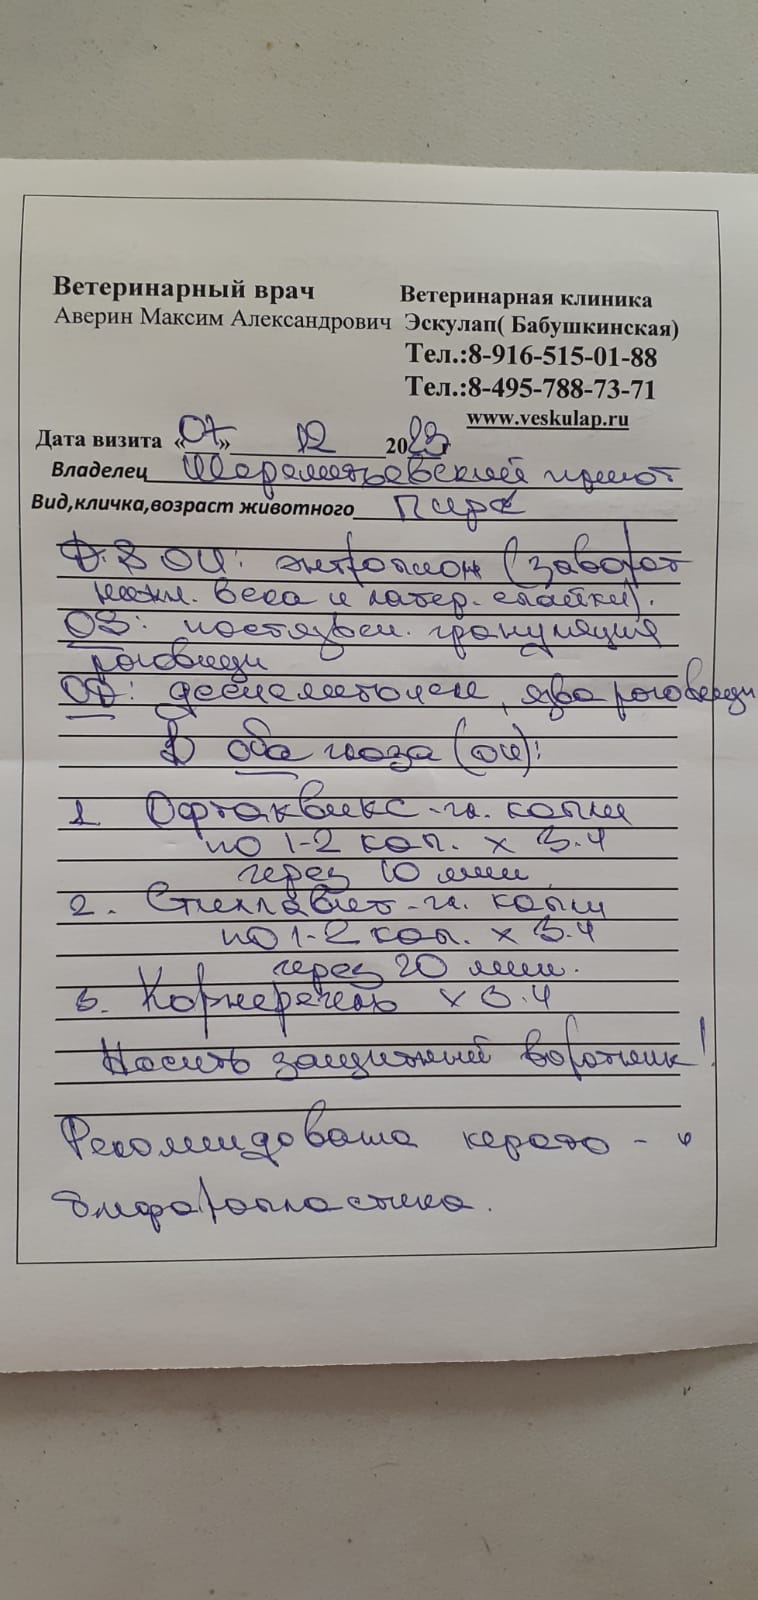 Ветеринарный врач
Аверин Максим Александрович
Ветеринарная клиника
Эскулап( Бабушкинская)
Тел.:8-916-515-01-88
Тел.:8-495-788-73-71
www.veskulap.ru
Дата визита «07» 12 2023г
Владелец Шереметьевский приют
Вид,кличка,возраст животного Пира
D.S OU: энтропион (заворот
нижн. века и латер. спайки).
OS: постязвен. грануляция
роговицы
OD: десцеметоцеле, язва роговицы
В оба глаза (OU):
1. Офтаквикс-гл. капли
по 1-2 кап. х 3.ч
через 10 мин
2. -гл. капли
по 1-2 кап. х 3.ч
через 20 мин.
3. Корнерегель х 3.ч
Носить защитный воротник!
Рекомендована керато - и
блефаропластика.